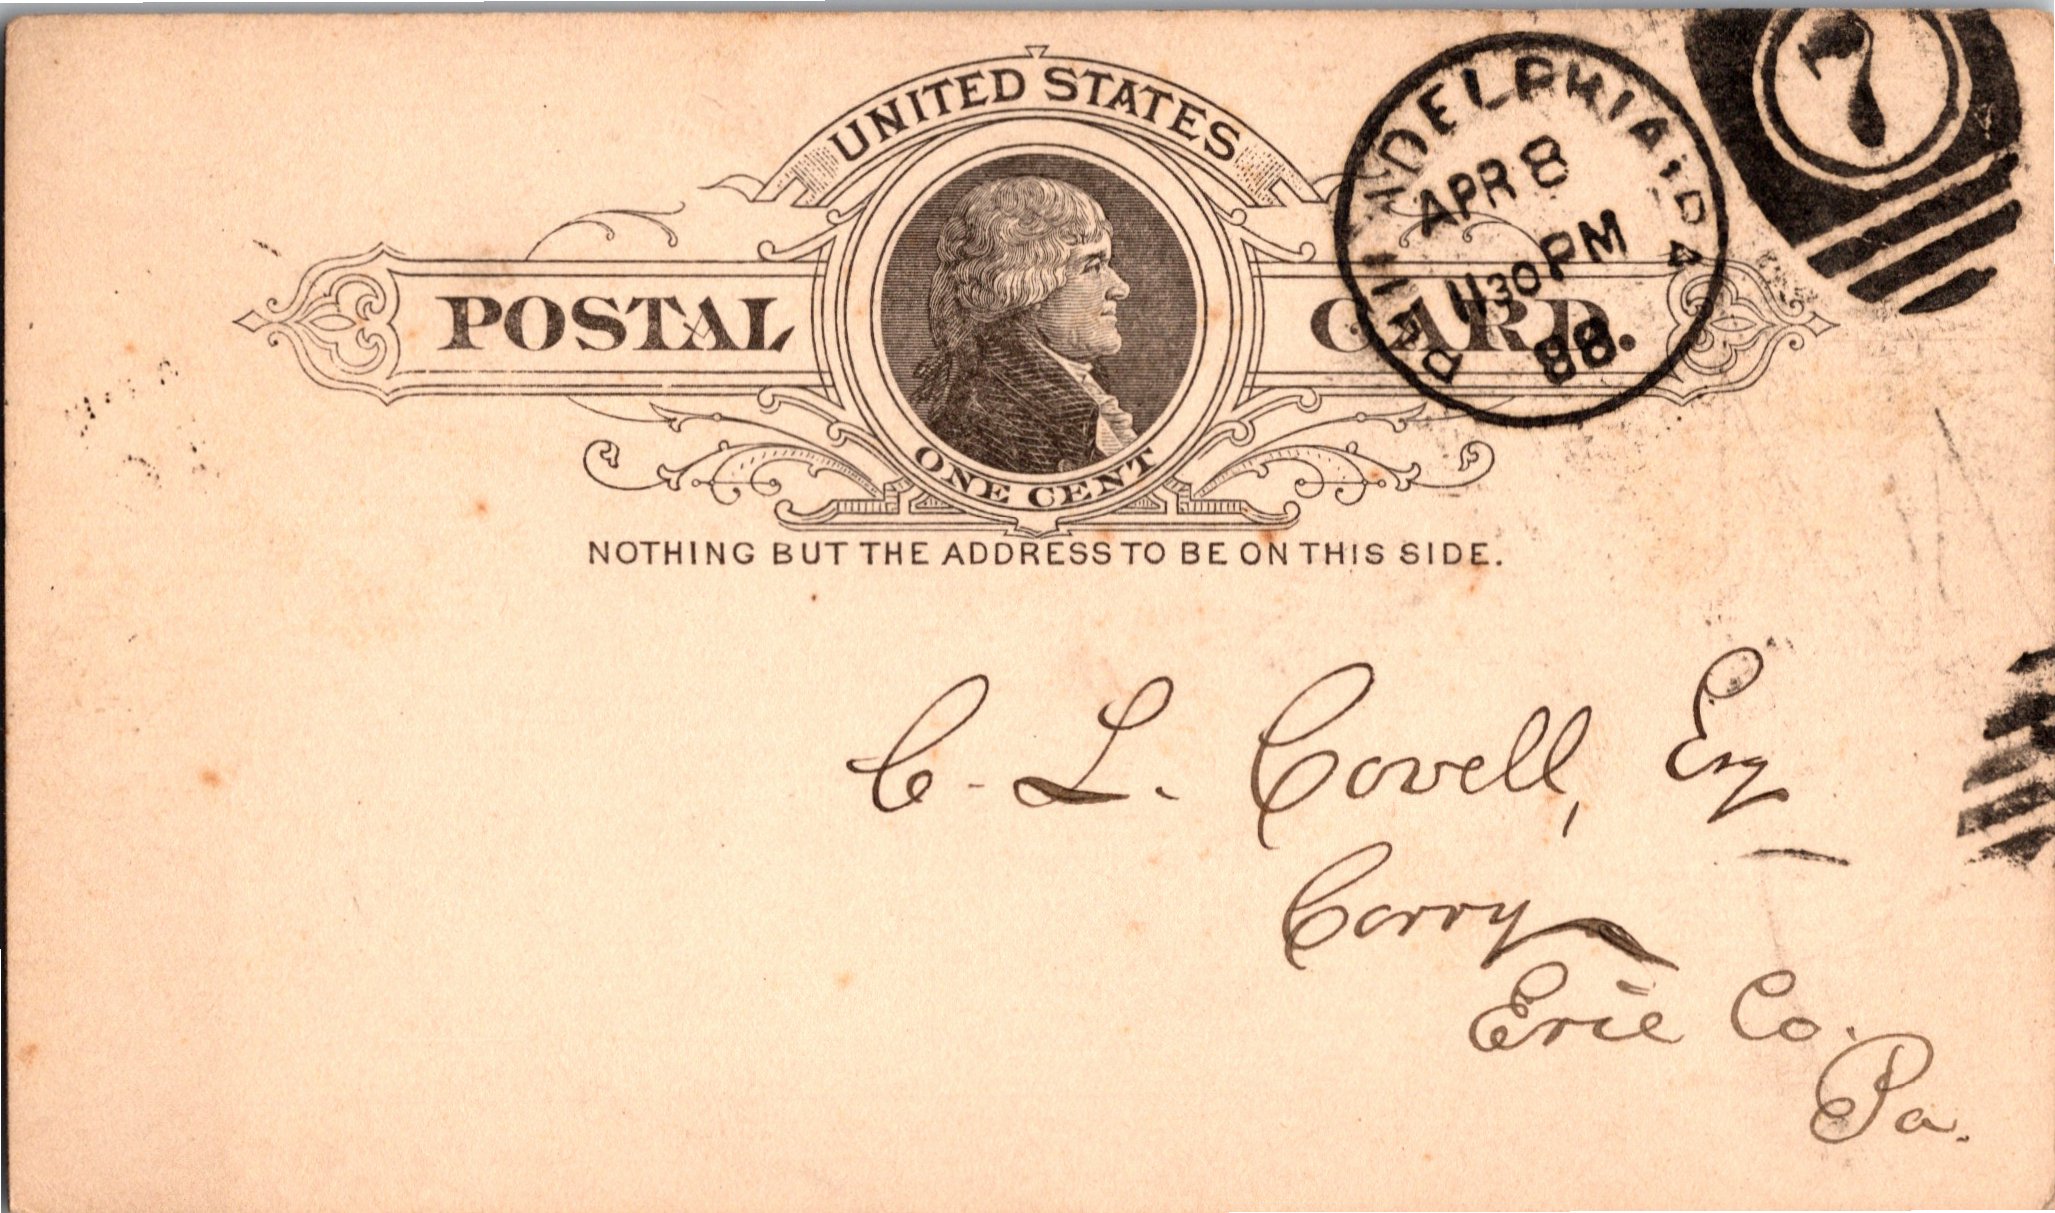 UNITED STATES
POSTAL CARD.
ONE CENT
NOTHING BUT THE ADDRESS TO BE ON THIS SIDE.
PHILADELPHIA, PA
APR 8
1130 PM
88
7
C. L. Covell, Esq
Corry
Erie Co.
Pa.